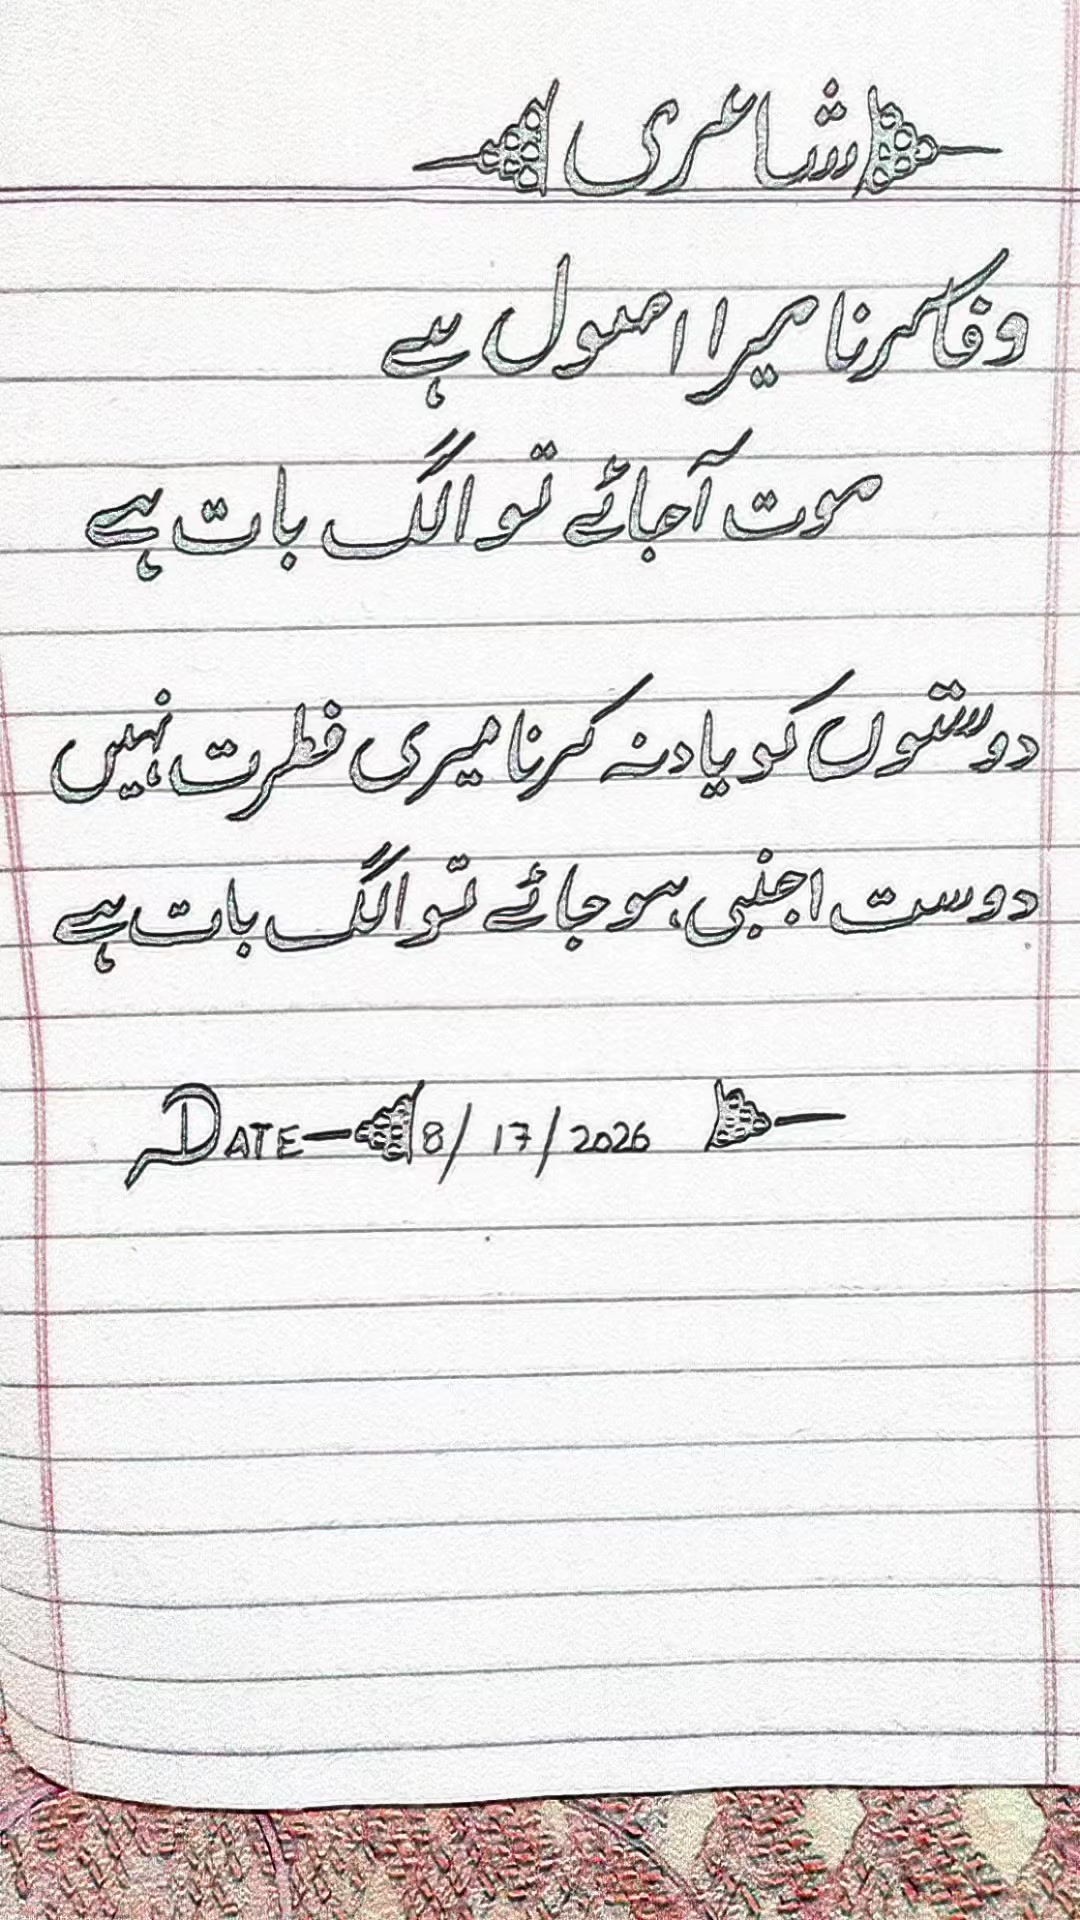 شاعری
وفا کرنا میرا اصول ہے
موت آجائے تو الگ بات ہے
دوستوں کو یاد نہ کرنا میری فطرت نہیں
دوست اجنبی ہو جائے تو الگ بات ہے
DATE 8/17/2026